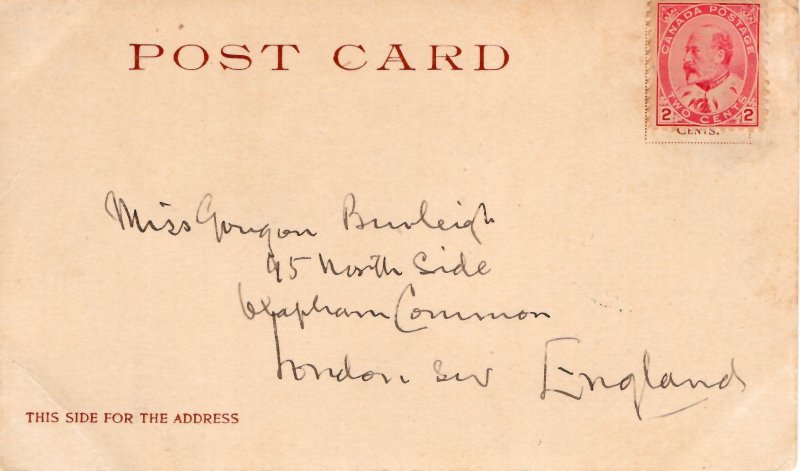 POST CARD
CANADA POSTAGE
TWO CENTS
2 2
CENTS.
Miss Burleigh
95 North Side
Clapham Common
London SW England
THIS SIDE FOR THE ADDRESS